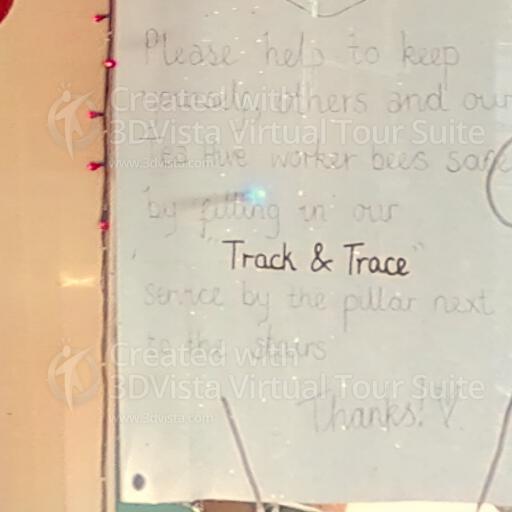 Please help to keep
yourself, others and our
hive worker bees safe
by filling in our
"Track & Trace"
service by the pillar next
to the stairs
Thanks!
Created with
3DVista Virtual Tour Suite
www.3dvista.com
Created with
3DVista Virtual Tour Suite
www.3dvista.com